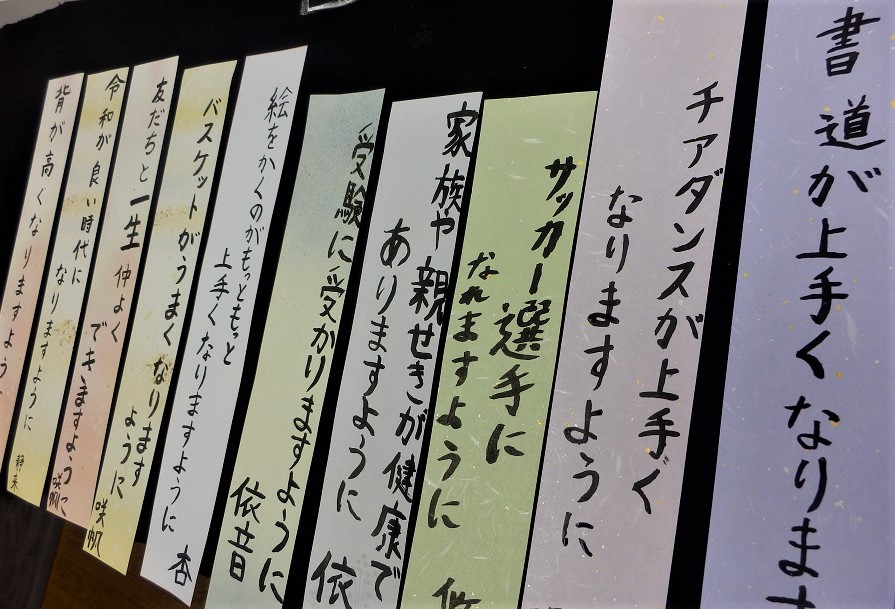 書道が上手くなりま
チアダンスが上手く
なりますように
サッカー選手に
なれますように
家族や親せきが健康で
ありますように
依
受験に受かりますように
依音
絵をかくのがもっともっと
上手くなりますように
杏
バスケットがうまくなります
ように
咲帆
友だちと一生仲よく
できますように
咲帆
令和が良い時代に
なりますように
静来
背が高くなりますよう